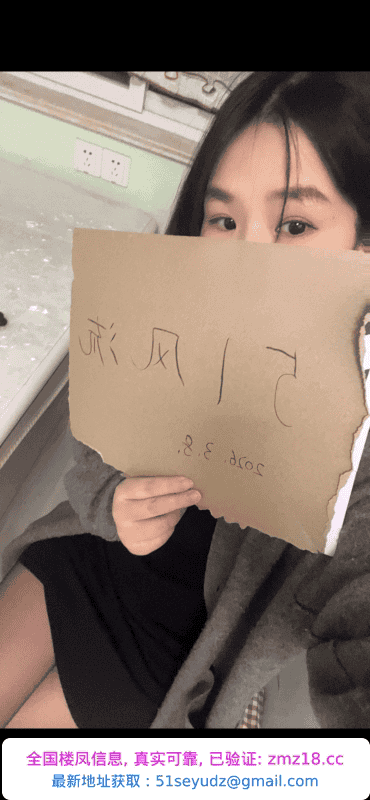 51风流
2026.3.8.
全国楼凤信息, 真实可靠, 已验证: zmz18.cc
最新地址获取：51seyudz@gmail.com